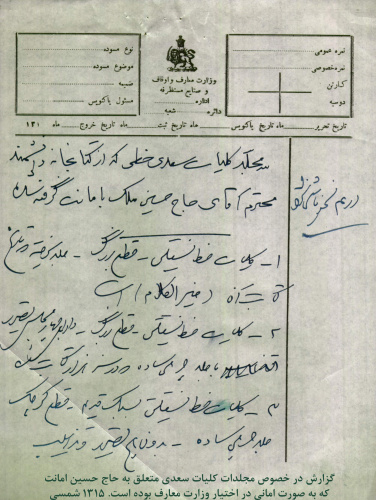 نمره عمومی
نمره خصوصی
کارتن
دوسیه
وزارت معارف و اوقاف
و صنایع مستظرفه
اداره
دائره شعبه
نوع مسوده
موضوع مسوده
ضمیمه
مسئول پاکنویس
تاریخ تحریر ماه تاریخ پاکنویس ماه تاریخ ثبت ماه تاریخ خروج ماه ۱۳۱
سه مجلد کلیات سعدی خطی که از کتابخانه دانشمند
محترم آقای حاج حسین ملک بامانت گرفته شده
۱ - کلیات خط نستعلیق - قطع بزرگ - جلد
(خیر الکلام) است
۲ - کلیات خط نستعلیق - قطع بزرگ - دارای چهار مجلس تصویر
با جلد چرمی ساده
۳ - کلیات خط نستعلیق سبک قدیم - قطع کوچک
جلد چرمی ساده - بدون تصویر و تذهیب
گزارش در خصوص مجلدات کلیات سعدی متعلق به حاج حسین امانت
که به صورت امانی در اختیار وزارت معارف بوده است. ۱۳۱۵ شمسی